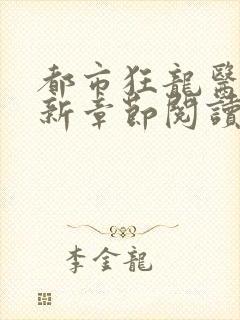 都市狂龍醫
新章節閱讀
李金龍